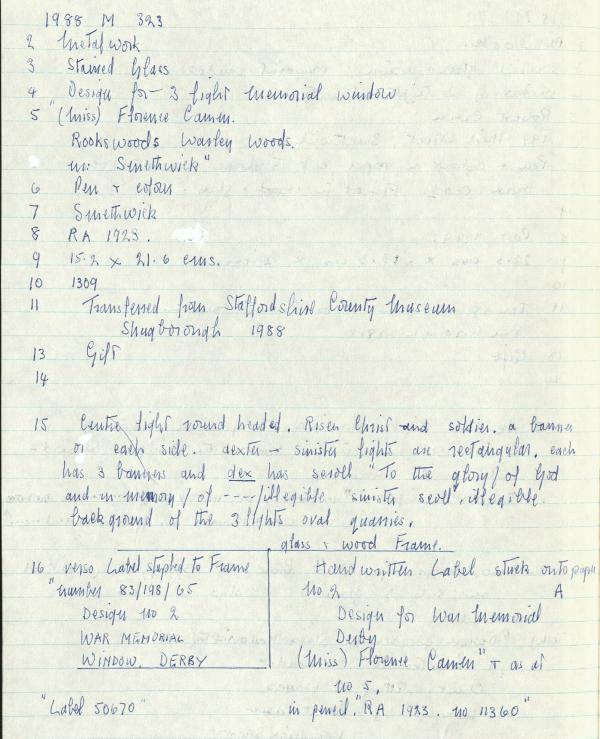 1988 M 323
2 Metalwork
3 Stained Glass
4 Design for 3 light Memorial window
5 "(Miss) Florence Camm.
Rookswoods Warley Woods.
nr: Smethwick"
6 Pen & colour
7 Smethwick
8 RA 1923.
9 15.2 x 21.6 cms.
10 1309
11 Transferred from Staffordshire County Museum
Shugborough 1988
13 Gift
14
15 Centre light round headed. Risen Christ and soldier. a banner
on each side. dexter - sinister lights are rectangular, each
has 3 banners and dex has scroll "To the glory / of God
and in memory / of ----/illegible "sinister scroll", illegible
background of the 3 lights oval quarries.
glass & wood Frame.
16 verso Label stapled to Frame
"number 83/198/65
Design no 2
WAR MEMORIAL
WINDOW. DERBY
Handwritten Label stuck onto paper
no 2 A
Design for War Memorial
Derby
(Miss) Florence Camm" & as at
no 5.
"Label 50670" in pencil. "RA 1923. no 11360"